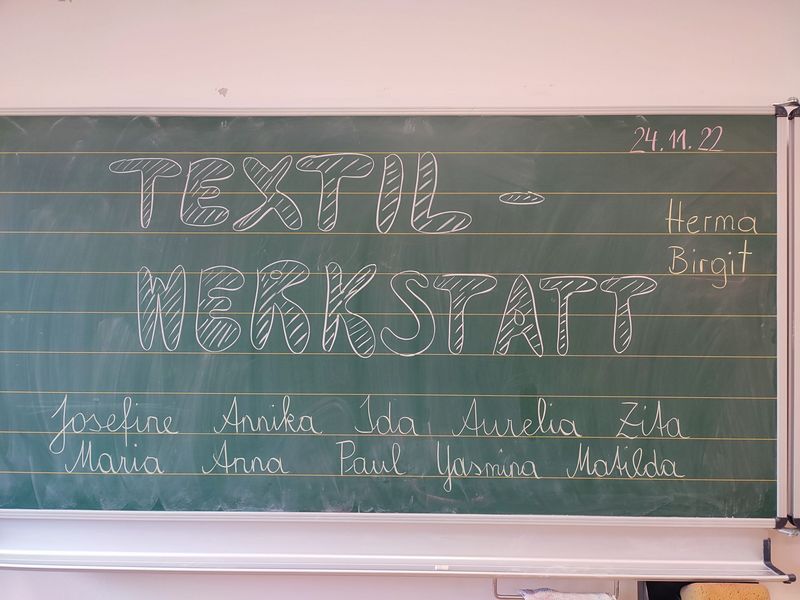 24.11.22
TEXTIL-
WERKSTATT
Herma
Birgit
Josefine Annika Ida Aurelia Zita
Maria Anna Paul Yasmina Matilda